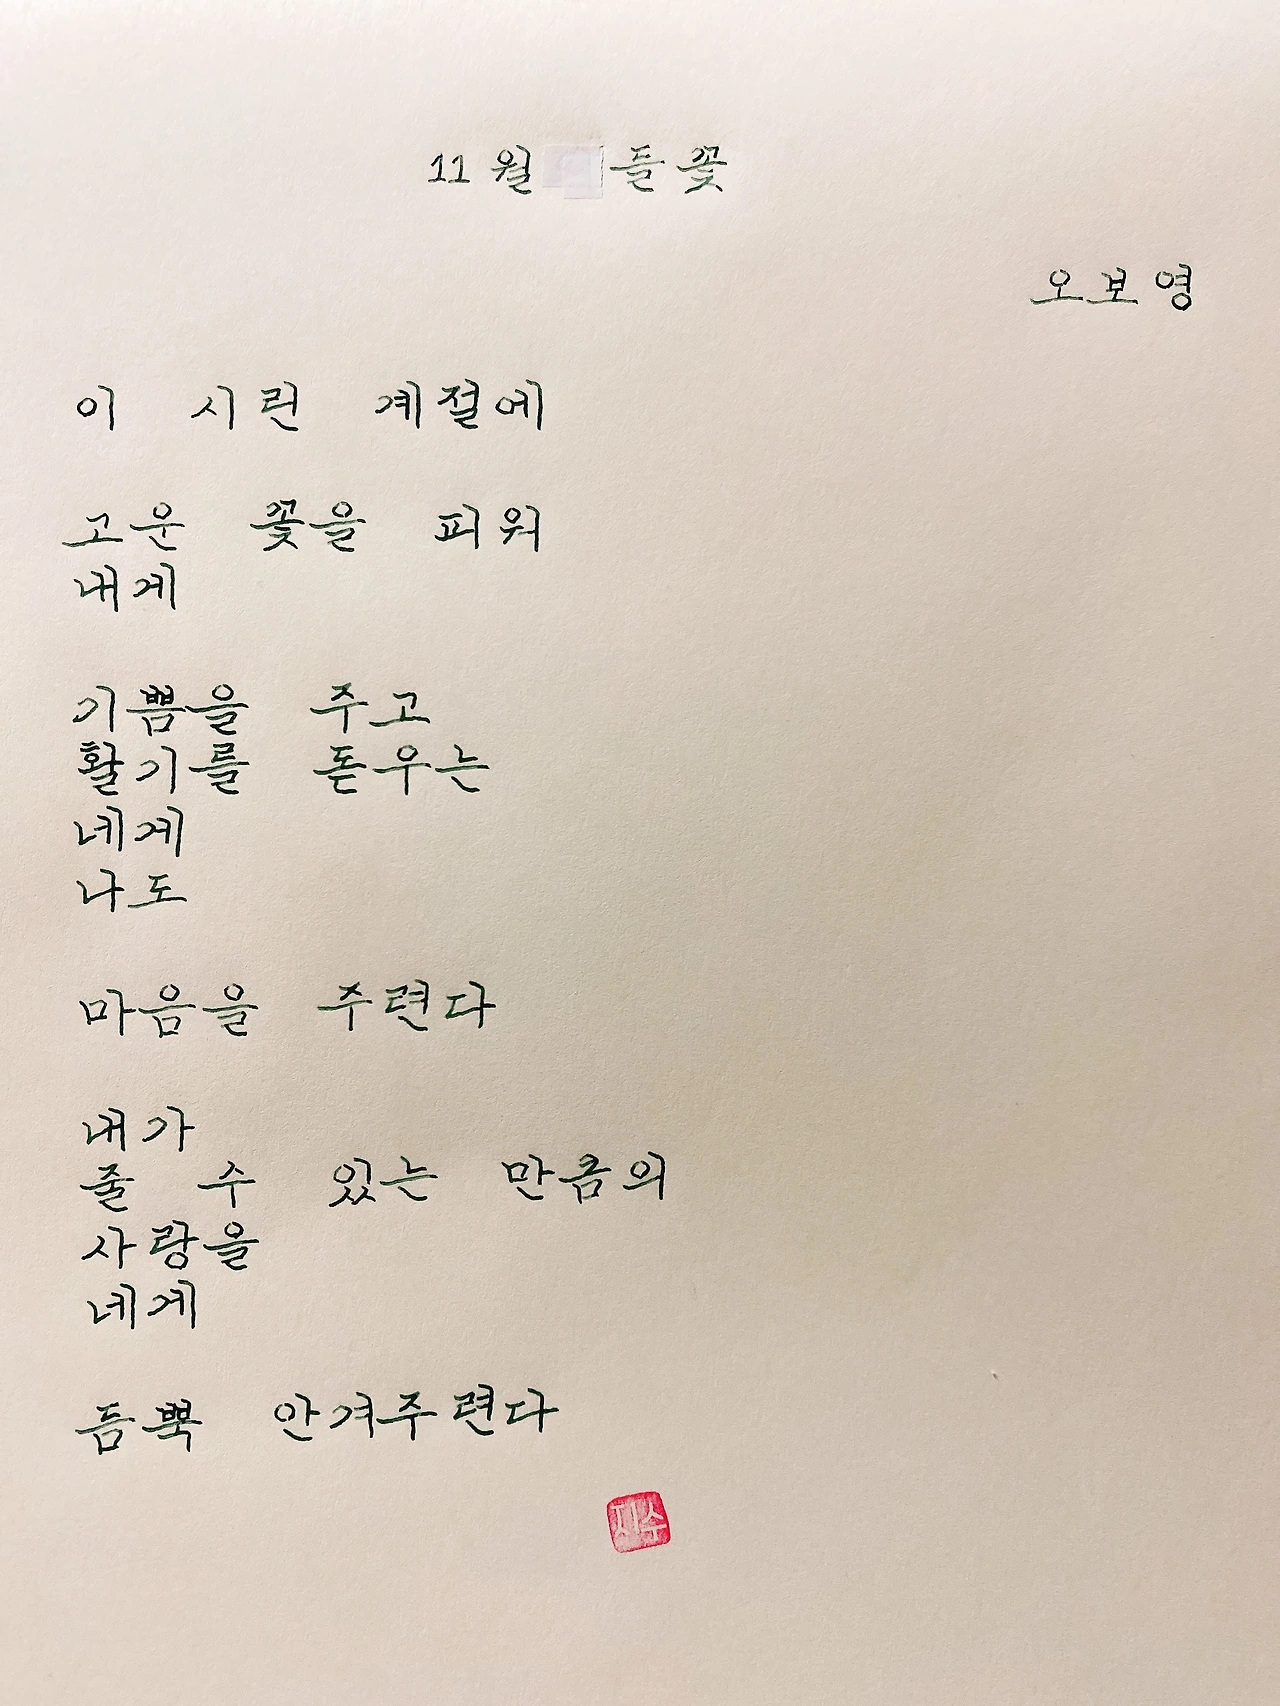 11월 들꽃
오보영
이 시린 계절에
고운 꽃을 피워
내게
기쁨을 주고
활기를 돋우는
네게
나도
마음을 주련다
내가
줄 수 있는 만큼의
사랑을
네게
듬뿍 안겨주련다
지수